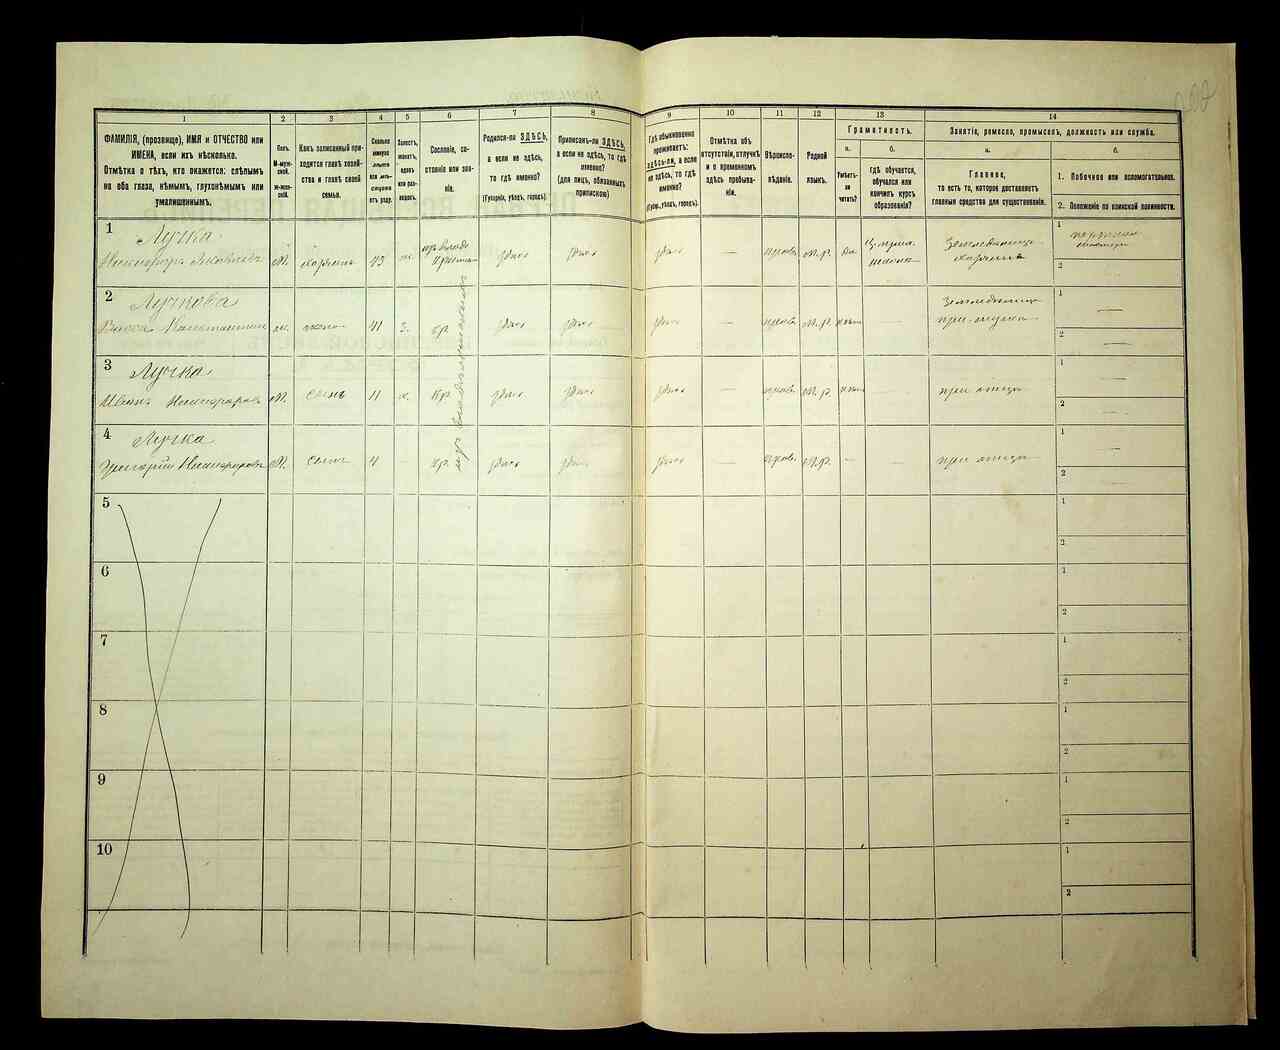 1
ФАМИЛІЯ, (прозвище), ИМЯ и ОТЧЕСТВО или
ИМЕНА, если ихъ нѣсколько.
Отмѣтка о тѣхъ, кто окажется: слѣпымъ
на оба глаза, нѣмымъ, глухонѣмымъ или
умалишеннымъ.
2
Полъ.
М-муж-
ской.
Ж-жен-
скій.
3
Какъ записанный при-
ходится главѣ хозяй-
ства и главѣ своей
семьи.
4
Сколько
минуло
лѣтъ
или мѣ-
сяцевъ
отъ роду.
5
Холостъ,
женатъ,
вдовъ
или раз-
веденъ.
6
Сословіе, со-
стояніе или зва-
ніе.
7
Родился-ли ЗДѢСЬ,
а если не здѣсь,
то гдѣ именно?
(Губернія, уѣздъ, городъ).
8
Приписанъ-ли ЗДѢСЬ,
а если не здѣсь, то гдѣ
именно?
(для лицъ, обязанныхъ
припискою)
9
Гдѣ обыкновенно
проживаетъ:
здѣсь-ли, а если
не здѣсь, то гдѣ
именно?
(Губер., уѣздъ, городъ).
10
Отмѣтка объ
отсутствіи, отлучкѣ
и о временномъ
здѣсь пребыва-
ніи.
11
Вѣроиспо-
вѣданіе.
12
Родной
языкъ.
13
Грамотность.
а.
Умѣетъ-
ли
читать?
б.
Гдѣ обучается,
обучался или
кончилъ курсъ
образованія?
14
Занятіе, ремесло, промыселъ, должность или служба.
а.
Главное,
то есть то, которое доставляетъ
главныя средства для существованія.
б.
1. Побочное или вспомогательное.
2. Положеніе по воинской повинности.
1
Лучка
Никифоръ Яковлевъ
М.
хозяинъ
43
ж.
здѣсь
здѣсь
здѣсь
—
правъ.
М.р.
да
Земледѣлецъ
хозяинъ
1
2
2
Лучкова
Васса
ж.
жена
41
з.
кр.
здѣсь
здѣсь
здѣсь
—
правъ.
М.р.
при мужѣ
1
—
2
—
3
Лучка
Иванъ Никифоровъ
М.
сынъ
11
х.
кр.
здѣсь
здѣсь
здѣсь
—
правъ.
М.р.
—
при отцѣ
1
—
2
—
4
Лучка
Григорій Никифоровъ
М.
сынъ
4
—
кр.
здѣсь
здѣсь
здѣсь
—
правъ.
М.р.
—
—
при отцѣ
1
—
2
—
5
1
2
6
1
2
7
1
2
8
1
2
9
1
2
10
1
2